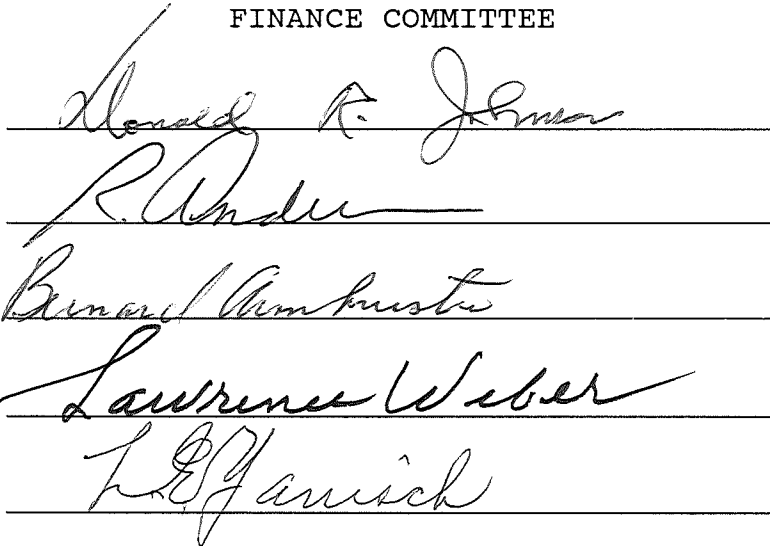 FINANCE COMMITTEE
Donald R. Johnson
R. Ander
Bernard Armbruster
Lawrence Weber
L.E. Yanisch